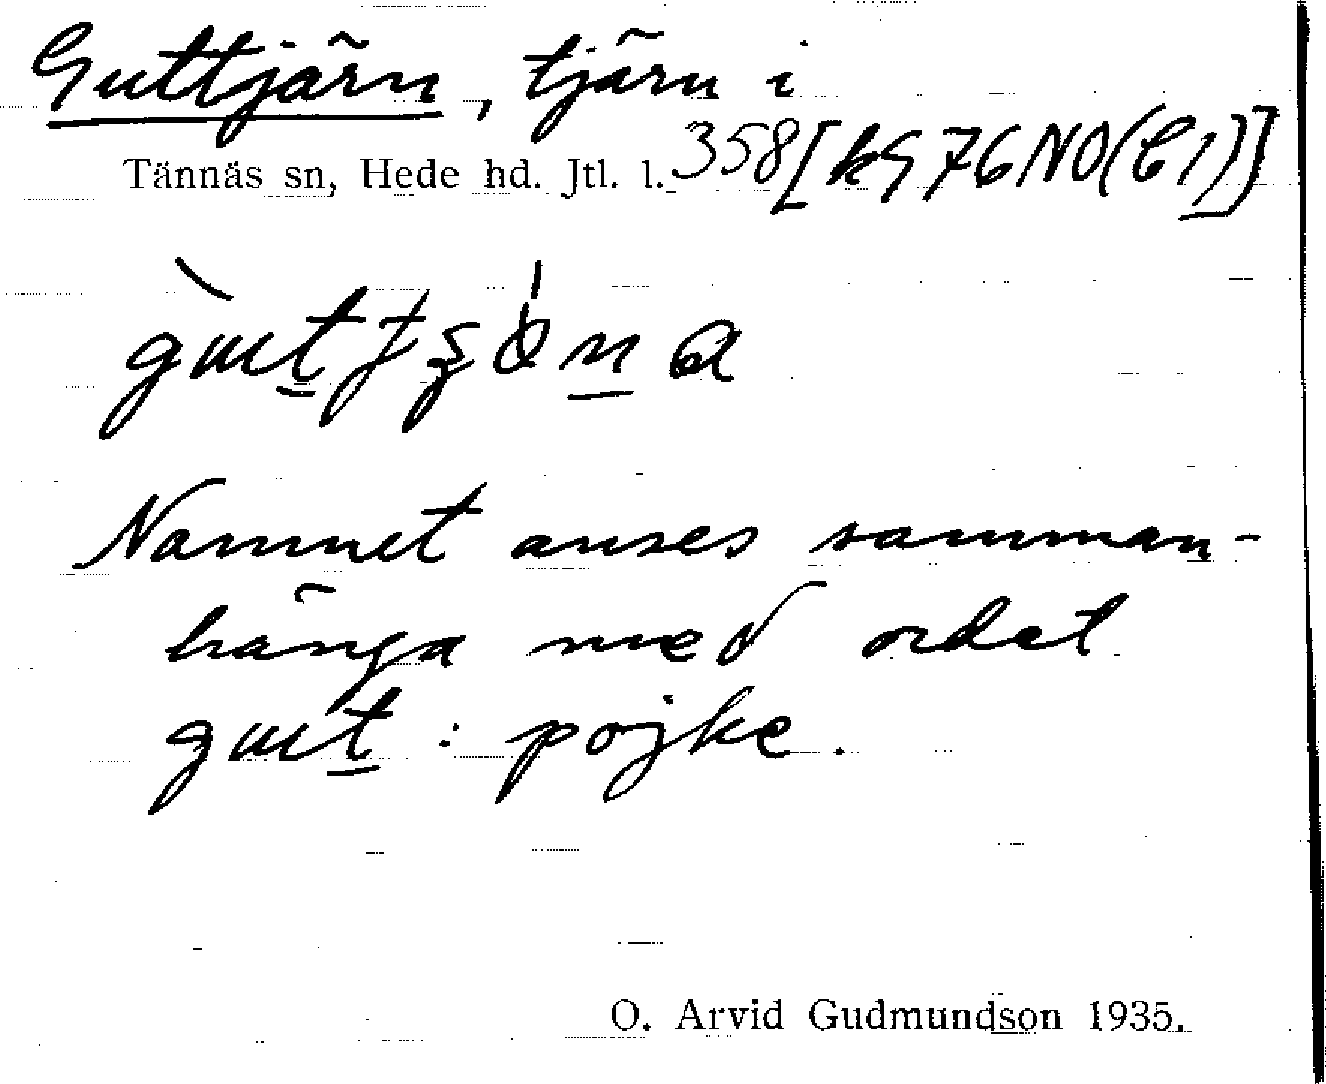 Guttjärn, tjärn i
Tännäs sn, Hede hd. Jtl. l. 358 [k976NO(C1)]
Namnet anses samman-
hänga med ordet
gut : pojke.
O. Arvid Gudmundson 1935.